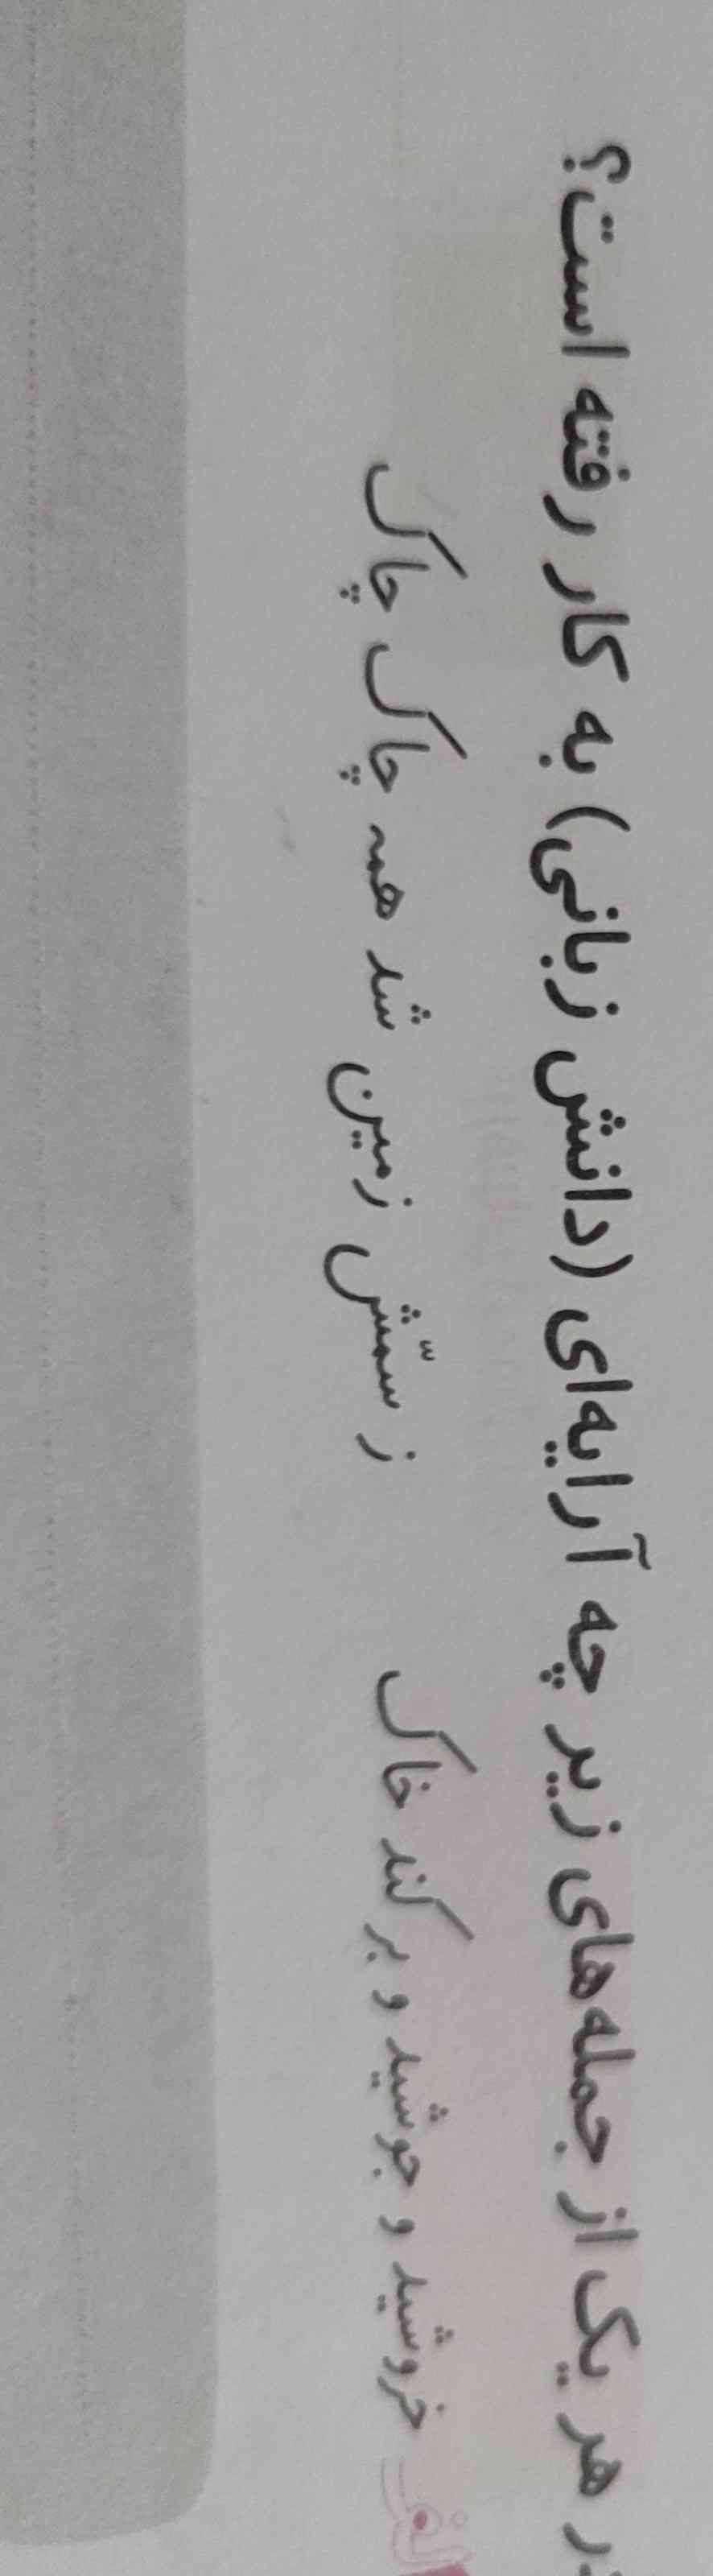 در هر یک از جمله‌های زیر چه آرایه‌ای (دانش زبانی) به کار رفته است؟
الف خروشید و جوشید و بر کند خاک ز سمّش زمین شد همه چاک چاک